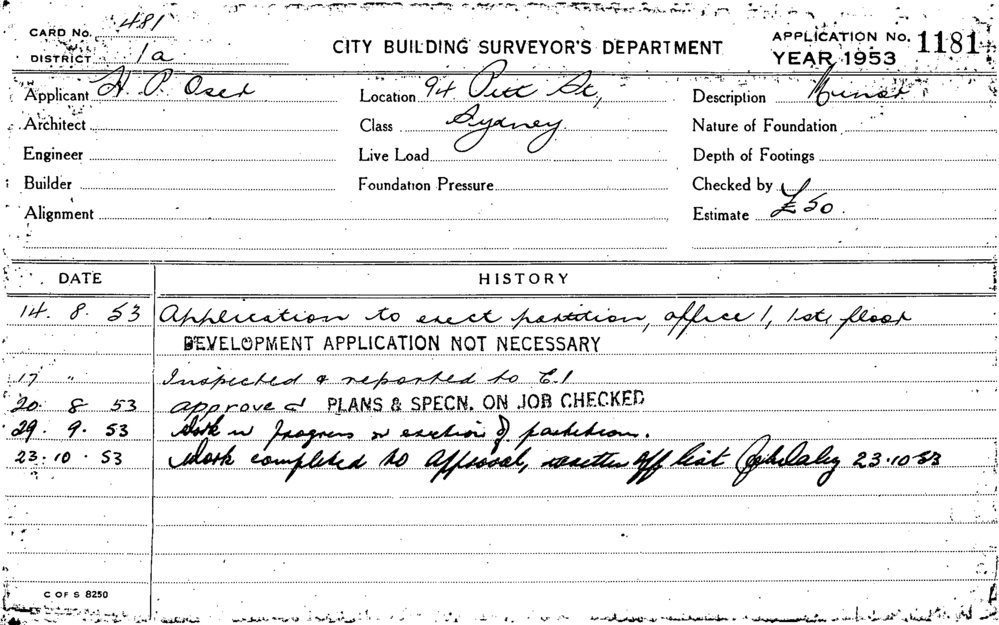 CARD No. 481
DISTRICT 1a
CITY BUILDING SURVEYOR'S DEPARTMENT
APPLICATION No. 1181
YEAR 1953
Applicant H. P. Oser
Location 94 Pitt St,
Description Minor
Architect
Class Sydney
Nature of Foundation
Engineer
Live Load
Depth of Footings
Builder
Foundation Pressure
Checked by
Alignment
Estimate £50.
DATE HISTORY
14. 8. 53 Application to erect partition, office 1, 1st floor
DEVELOPMENT APPLICATION NOT NECESSARY
17 " Inspected & reported to C.I
20. 8 53 approved PLANS & SPECN. ON JOB CHECKED
29. 9. 53 Work in progress on erection of partitions.
23. 10. 53 Work completed to approval, written off list 23.10.53
C OF S 8250